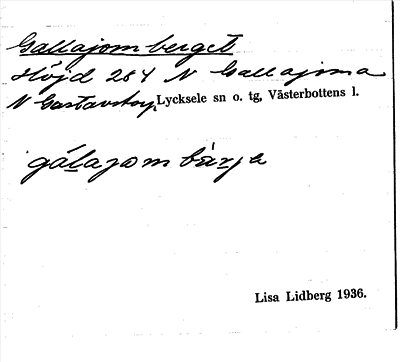 Gallajomberget
Höjd 284 N Gallajoma
N Gustavstorp, Lycksele sn o. tg, Västerbottens l.
gálajom bärja
Lisa Lidberg 1936.